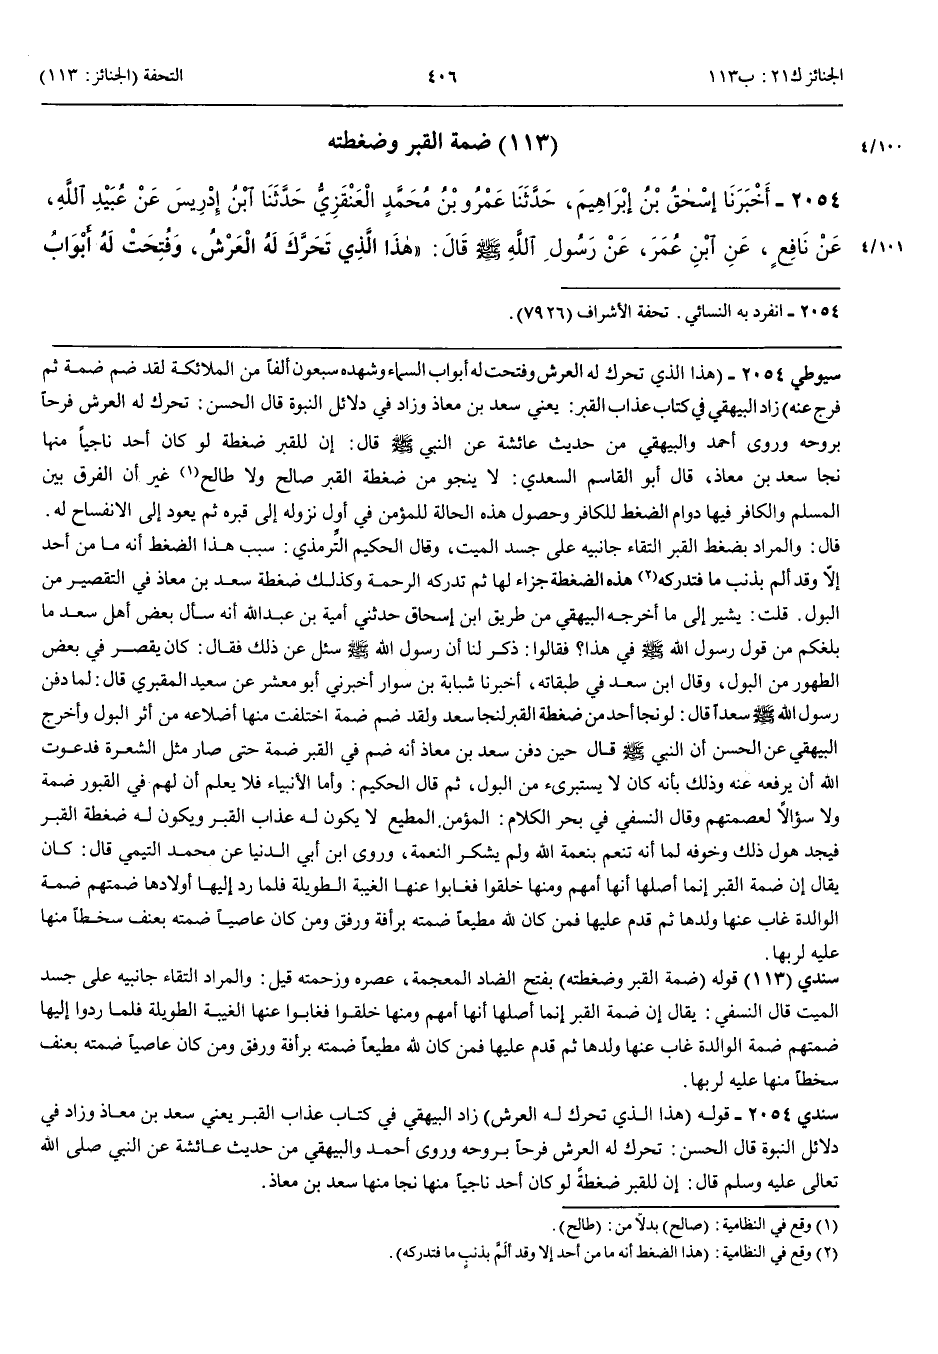 الجنائز ك٢١: ب١١٣ ٤٠٦ التحفة (الجنائز: ١١٣)
٤/١٠٠ (١١٣) ضمة القبر وضغطته
٢٠٥٤ ـ أَخْبَرَنَا إِسْحٰقُ بْنُ إِبْرَاهِيمَ، حَدَّثَنَا عَمْرُو بْنُ مُحَمَّدٍ الْعَنْقَزِيُّ حَدَّثَنَا ٱبْنُ إِدْرِيسَ عَنْ عُبَيْدِ ٱللَّهِ،
٤/١٠١ عَنْ نَافِعٍ، عَنِ ٱبْنِ عُمَرَ، عَنْ رَسُولِ ٱللَّهِ ﷺ قَالَ: «هٰذَا الَّذِي تَحَرَّكَ لَهُ الْعَرْشُ، وَفُتِحَتْ لَهُ أَبْوَابُ
٢٠٥٤ ـ انفرد به النسائي. تحفة الأشراف (٧٩٢٦).
سيوطي ٢٠٥٤ ـ (هذا الذي تحرك له العرش وفتحت له أبواب السماء وشهده سبعون ألفاً من الملائكة لقد ضم ضمة ثم
فرج عنه) زاد البيهقي في كتاب عذاب القبر: يعني سعد بن معاذ وزاد في دلائل النبوة قال الحسن: تحرك له العرش فرحاً
بروحه وروى أحمد والبيهقي من حديث عائشة عن النبي ﷺ قال: إن للقبر ضغطة لو كان أحد ناجياً منها
نجا سعد بن معاذ، قال أبو القاسم السعدي: لا ينجو من ضغطة القبر صالح ولا طالح(١) غير أن الفرق بين
المسلم والكافر فيها دوام الضغط للكافر وحصول هذه الحالة للمؤمن في أول نزوله إلى قبره ثم يعود إلى الانفساح له.
قال: والمراد بضغط القبر التقاء جانبيه على جسد الميت، وقال الحكيم التِّرمذي: سبب هذا الضغط أنه ما من أحد
إلاّ وقد ألم بذنب ما فتدركه(٢) هذه الضغطة جزاء لها ثم تدركه الرحمة وكذلك ضغطة سعد بن معاذ في التقصير من
البول. قلت: يشير إلى ما أخرجه البيهقي من طريق ابن إسحاق حدثني أمية بن عبدالله أنه سأل بعض أهل سعد ما
بلغكم من قول رسول الله ﷺ في هذا؟ فقالوا: ذكر لنا أن رسول الله ﷺ سئل عن ذلك فقال: كان يقصر في بعض
الطهور من البول، وقال ابن سعد في طبقاته، أخبرنا شبابة بن سوار أخبرني أبو معشر عن سعيد المقبري قال: لما دفن
رسول الله ﷺ سعداً قال: لو نجا أحد من ضغطة القبر لنجا سعد ولقد ضم ضمة اختلفت منها أضلاعه من أثر البول وأخرج
البيهقي عن الحسن أن النبي ﷺ قال حين دفن سعد بن معاذ أنه ضم في القبر ضمة حتى صار مثل الشعرة فدعوت
الله أن يرفعه عنه وذلك بأنه كان لا يستبرىء من البول، ثم قال الحكيم: وأما الأنبياء فلا يعلم أن لهم في القبور ضمة
ولا سؤالاً لعصمتهم وقال النسفي في بحر الكلام: المؤمن المطيع لا يكون له عذاب القبر ويكون له ضغطة القبر
فيجد هول ذلك وخوفه لما أنه تنعم بنعمة الله ولم يشكر النعمة، وروى ابن أبي الدنيا عن محمد التيمي قال: كان
يقال إن ضمة القبر إنما أصلها أنها أمهم ومنها خلقوا فغابوا عنها الغيبة الطويلة فلما رد إليها أولادها ضمتهم ضمة
الوالدة غاب عنها ولدها ثم قدم عليها فمن كان لله مطيعاً ضمته برأفة ورفق ومن كان عاصياً ضمته بعنف سخطاً منها
عليه لربها.
سندي (١١٣) قوله (ضمة القبر وضغطته) بفتح الضاد المعجمة، عصره وزحمته قيل: والمراد التقاء جانبيه على جسد
الميت قال النسفي: يقال إن ضمة القبر إنما أصلها أنها أمهم ومنها خلقوا فغابوا عنها الغيبة الطويلة فلما ردوا إليها
ضمتهم ضمة الوالدة غاب عنها ولدها ثم قدم عليها فمن كان لله مطيعاً ضمته برأفة ورفق ومن كان عاصياً ضمته بعنف
سخطاً منها عليه لربها.
سندي ٢٠٥٤ ـ قوله (هذا الذي تحرك له العرش) زاد البيهقي في كتاب عذاب القبر يعني سعد بن معاذ وزاد في
دلائل النبوة قال الحسن: تحرك له العرش فرحاً بروحه وروى أحمد والبيهقي من حديث عائشة عن النبي صلى الله
تعالى عليه وسلم قال: إن للقبر ضغطةً لو كان أحد ناجياً منها نجا منها سعد بن معاذ.
(١) وقع في النظامية: (صالح) بدلاً من: (طالح).
(٢) وقع في النظامية: (هذا الضغط أنه ما من أحد إلا وقد ألَمَّ بذنبٍ ما فتدركه).